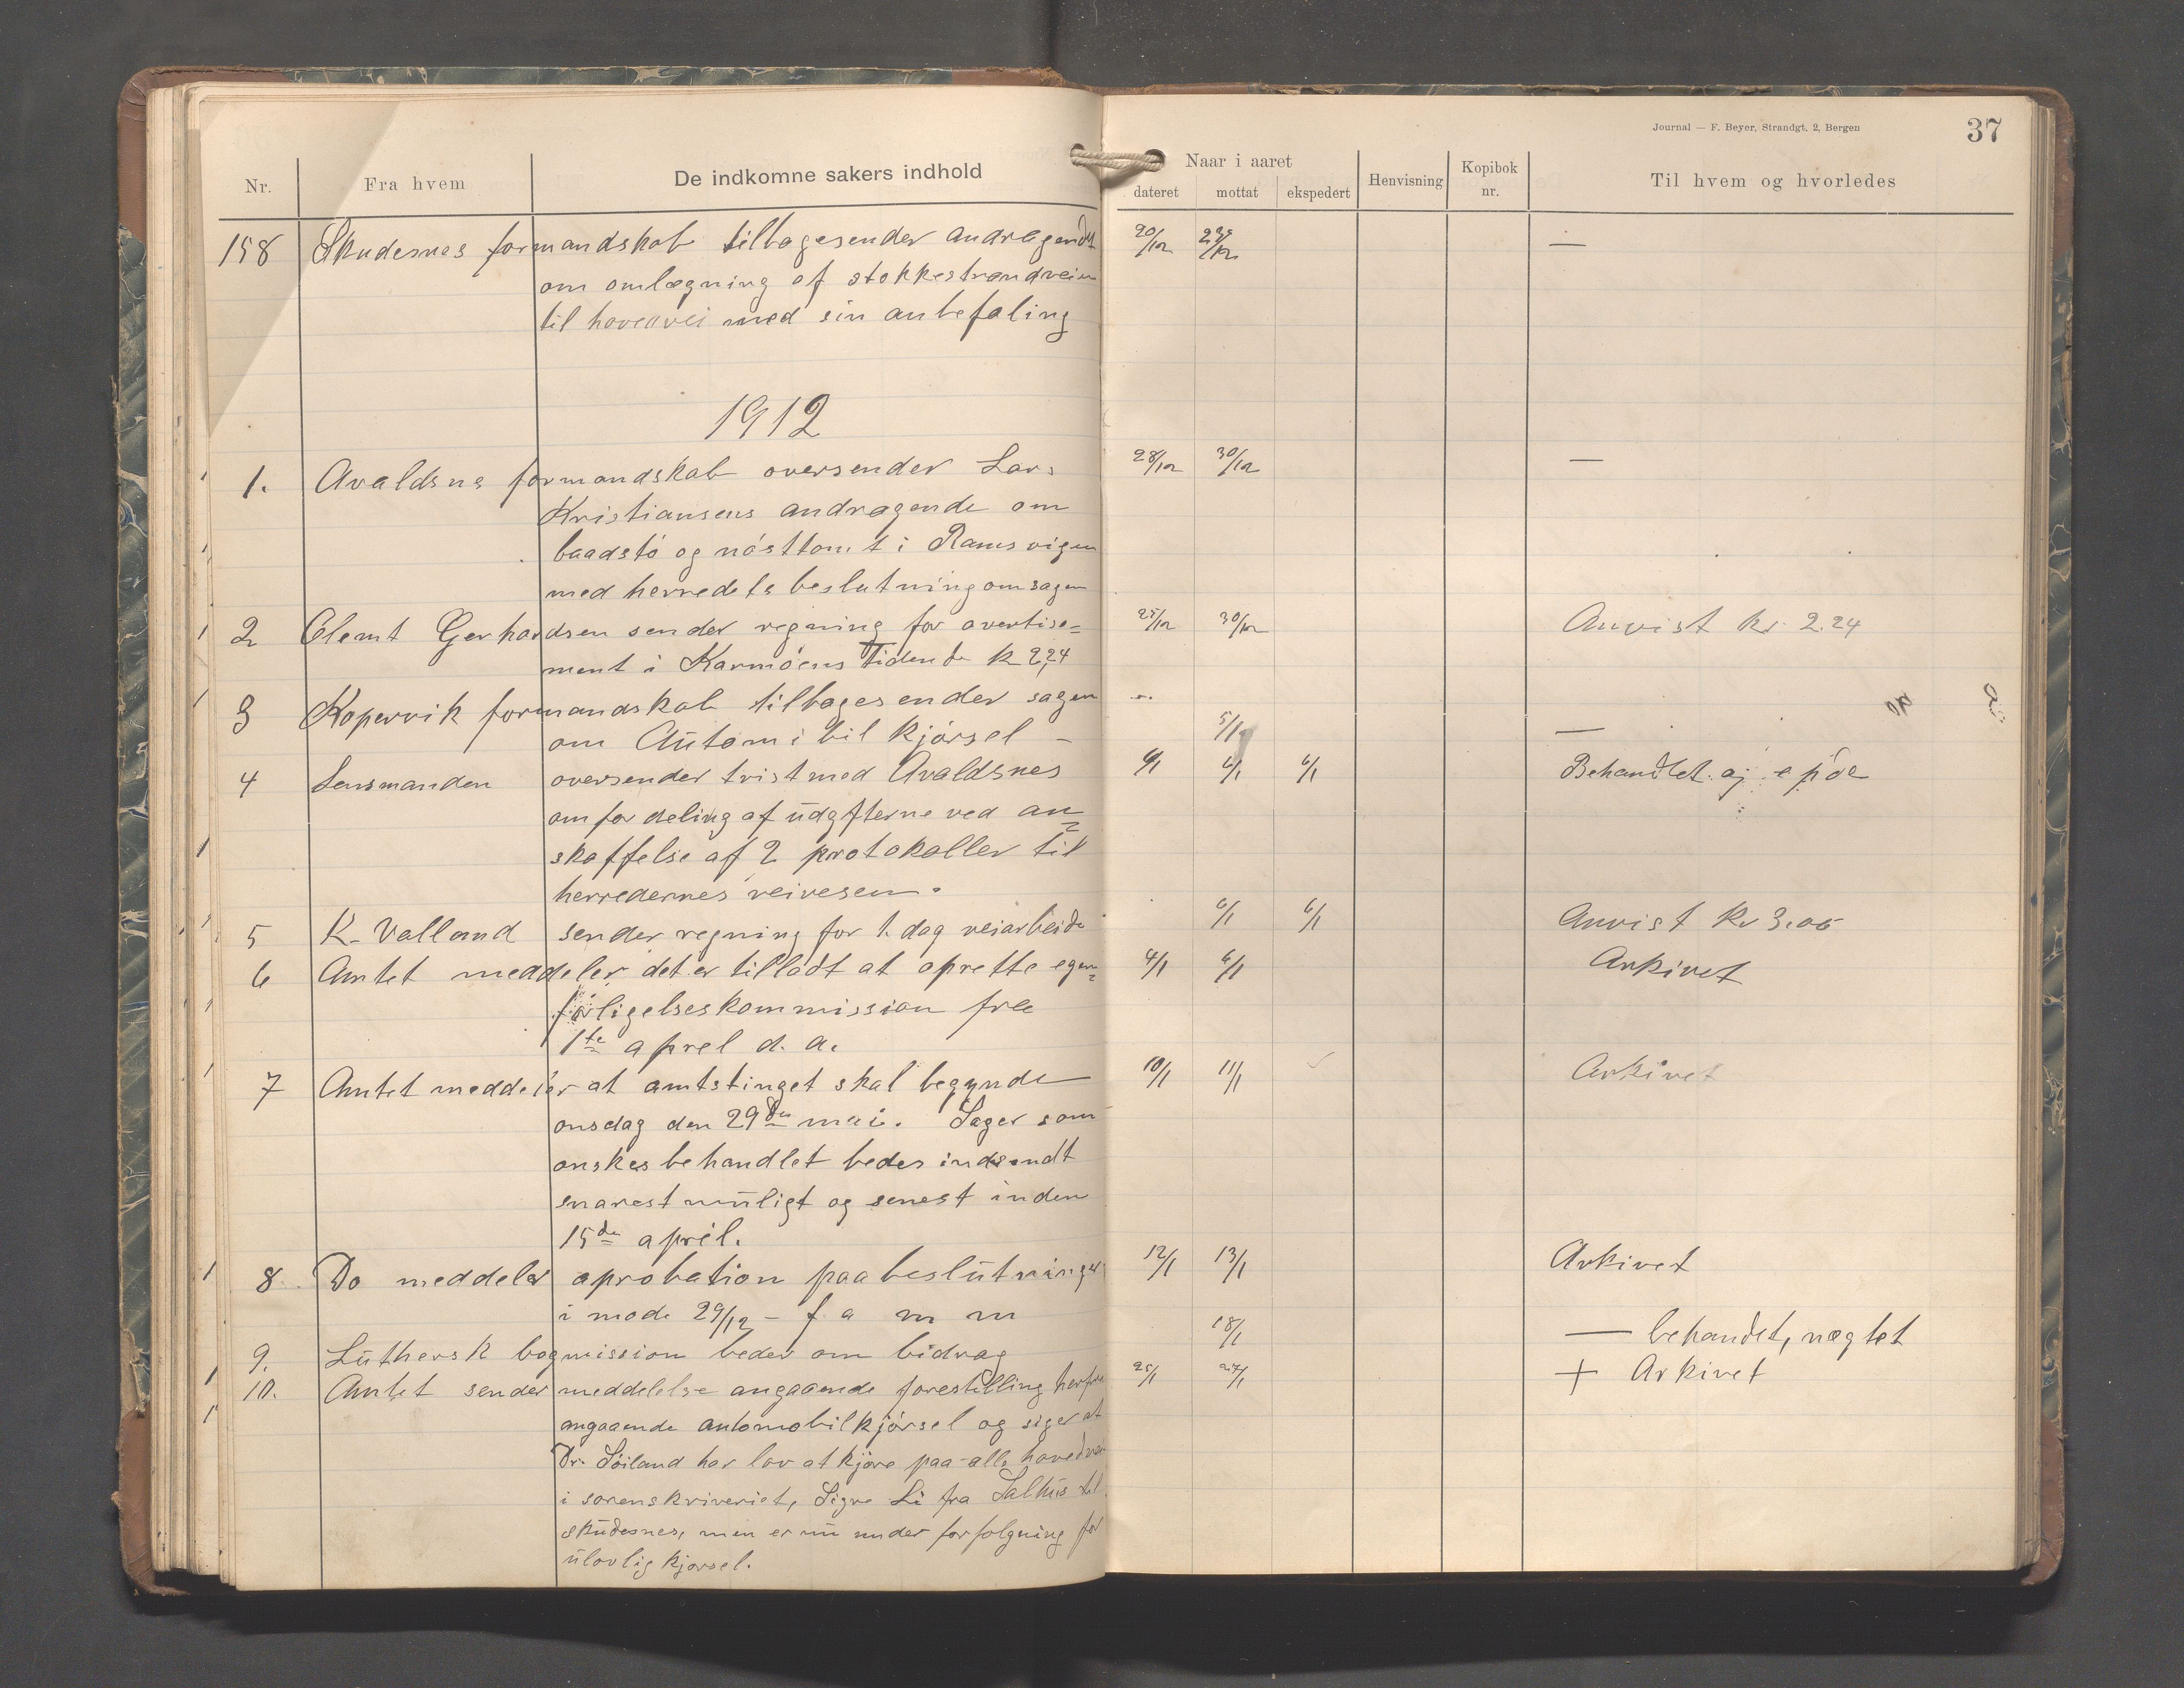 Journal — F. Beyer, Strandgt. 2, Bergen
37
Nr. Fra hvem De indkomne sakers indhold Naar i aaret dateret mottat ekspedert Henvisning Kopibok nr. Til hvem og hvorledes
158 Skudesnes formandskab tilbagesender andragendet 20/12 —
om omlægning af stokkestrandveien
til hovedvei med sin anbefaling
1912
1. Avaldsnes formandskab oversender Lars 28/12 30/12 —
Kristiansens andragende om
baadstö og nösttomt i Ramsvigen
med herredets beslutning om sagen
2 Clemt Gerhardsen sender regning for avertise= 30/12 Anvist kr 2.24
ment i Karmöens Tidende k 2,24
3 Kopervik formandskab tilbagesender sagen
om Automibil kjörsel – 5/1 —
4 Lensmanden oversender tvist med Avaldsnes 6/1 6/1 6/1 Behandlet
om fordeling af udgfterne ved an=
skaffelse af 2 protokoller til
herredernes veivesen.
5 K. Valland sender regning for 1. dag veiarbeide 6/1 6/1 Anvist Kr 3.00
6 Amtet meddeler det er tilladt at oprette egen= 4/1 6/1 Arkivet
forligelseskommission fra
1te aprel d. a.
7 Amtet meddeler at amtstinget skal begynde 10/1 11/1 Arkivet
onsdag den 29de mai. Sager som
onskes behandlet bedes indsendt
snarest muligt og senest inden
15de april.
8 Do meddeler aprobation paa beslutninger 12/1 13/1 Arkivet
i mode 29/12 – f. a m m
9. Luthersk bogmission beder om bidrag 18/1 — behandet, nægtet
10. Amtet sender meddelelse angaaende forestilling herfra 25/1 27/1 + Arkivet
angaaende automobilkjörsel og siger at
Dr. Söiland har lov at kjöre paa alle hovedveie
i sorenskriveriet, Sigve Li fra Salhus til
skudesnes, men er nu under forfolgning for
ulovlig kjorsel.